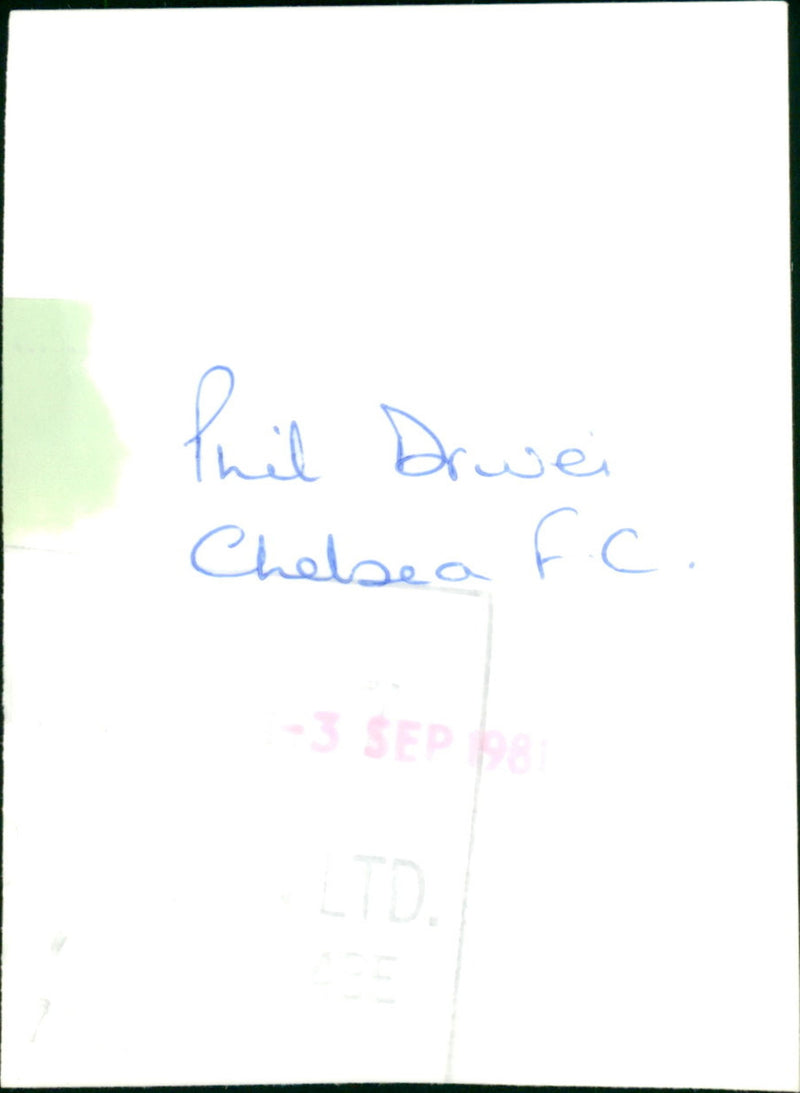 Phil Driver
Chelsea F.C.
-3 SEP 1981
LTD.